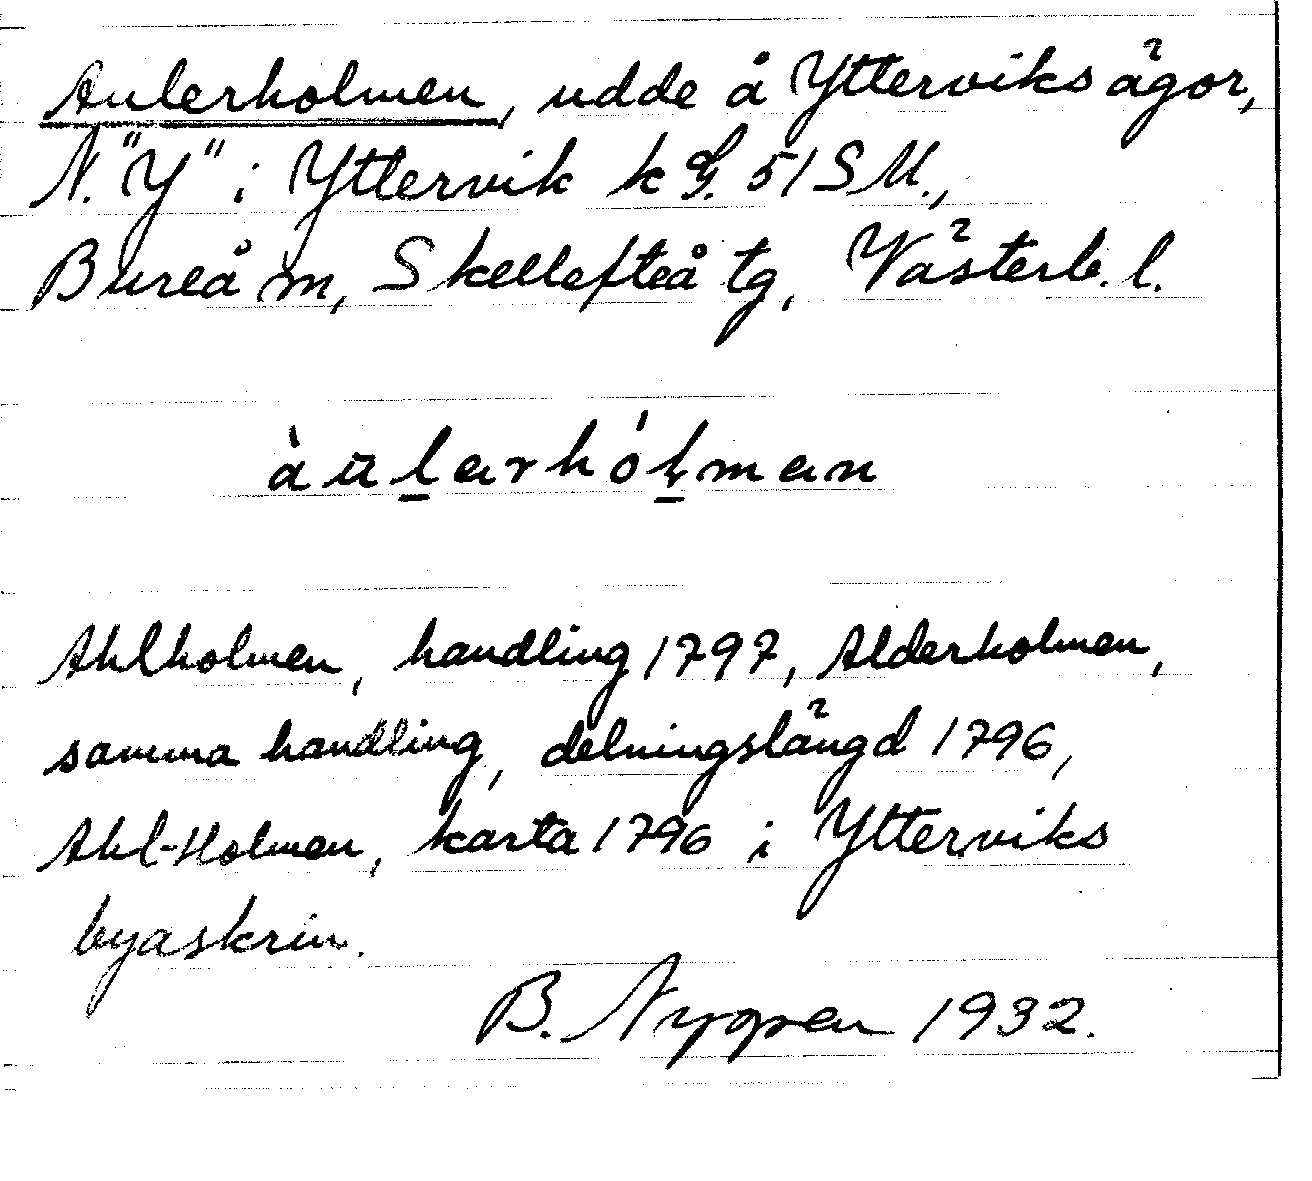 Aulerholmen, udde å Ytterviks ägor,
N. "Y" i Yttervik k G. 51 S M.,
Bureå m, Skellefteå tg, Västerb. l.
àu̅l̲ɑrhól̲mɑn
Ahlholmen, handling 1797, Alderholmen,
samma handling, delningslängd 1796,
Ahl-Holmen, karta 1796 i Ytterviks
byaskrin.
B. Nygren 1932.